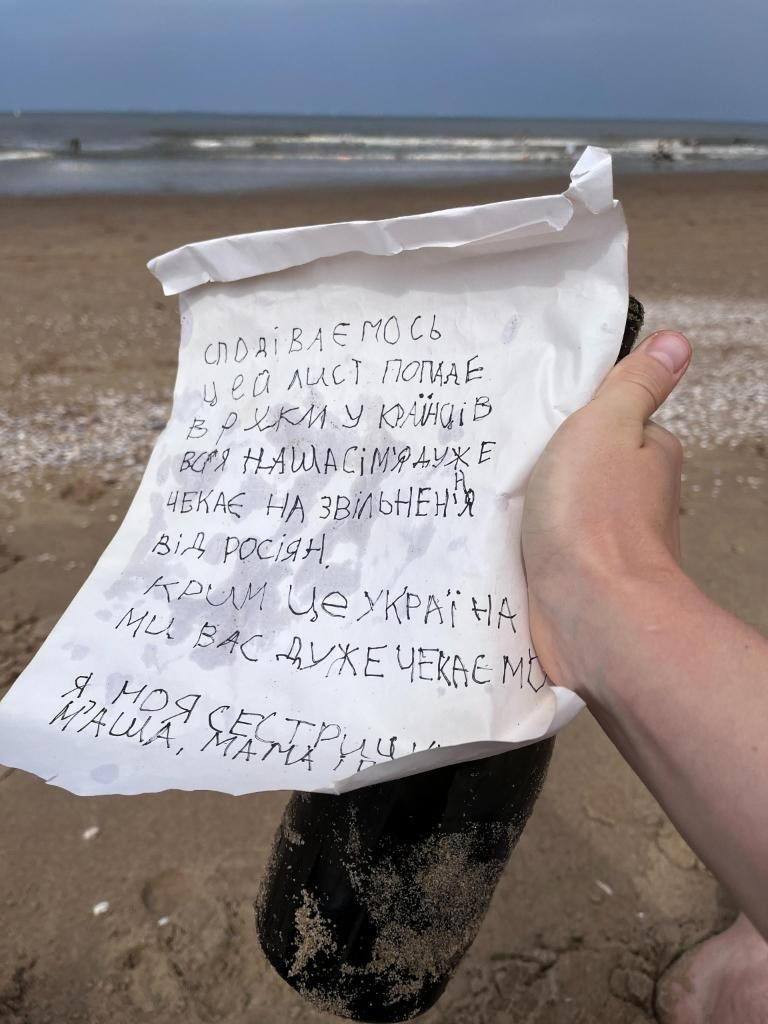 СПОДІВАЄМОСЬ
ЦЕЙ ЛИСТ ПОПАДЕ
В РУКИ УКРАЇНЦІВ
ВСЯ НАША СІМ'Я ДУЖЕ
ЧЕКАЄ НА ЗВІЛЬНЕННЯ
ВІД РОСІЯН.
КРИМ ЦЕ УКРАЇНА
МИ ВАС ДУЖЕ ЧЕКАЄМО
Я МОЯ СЕСТРИЧКА
МАША, МАМА І